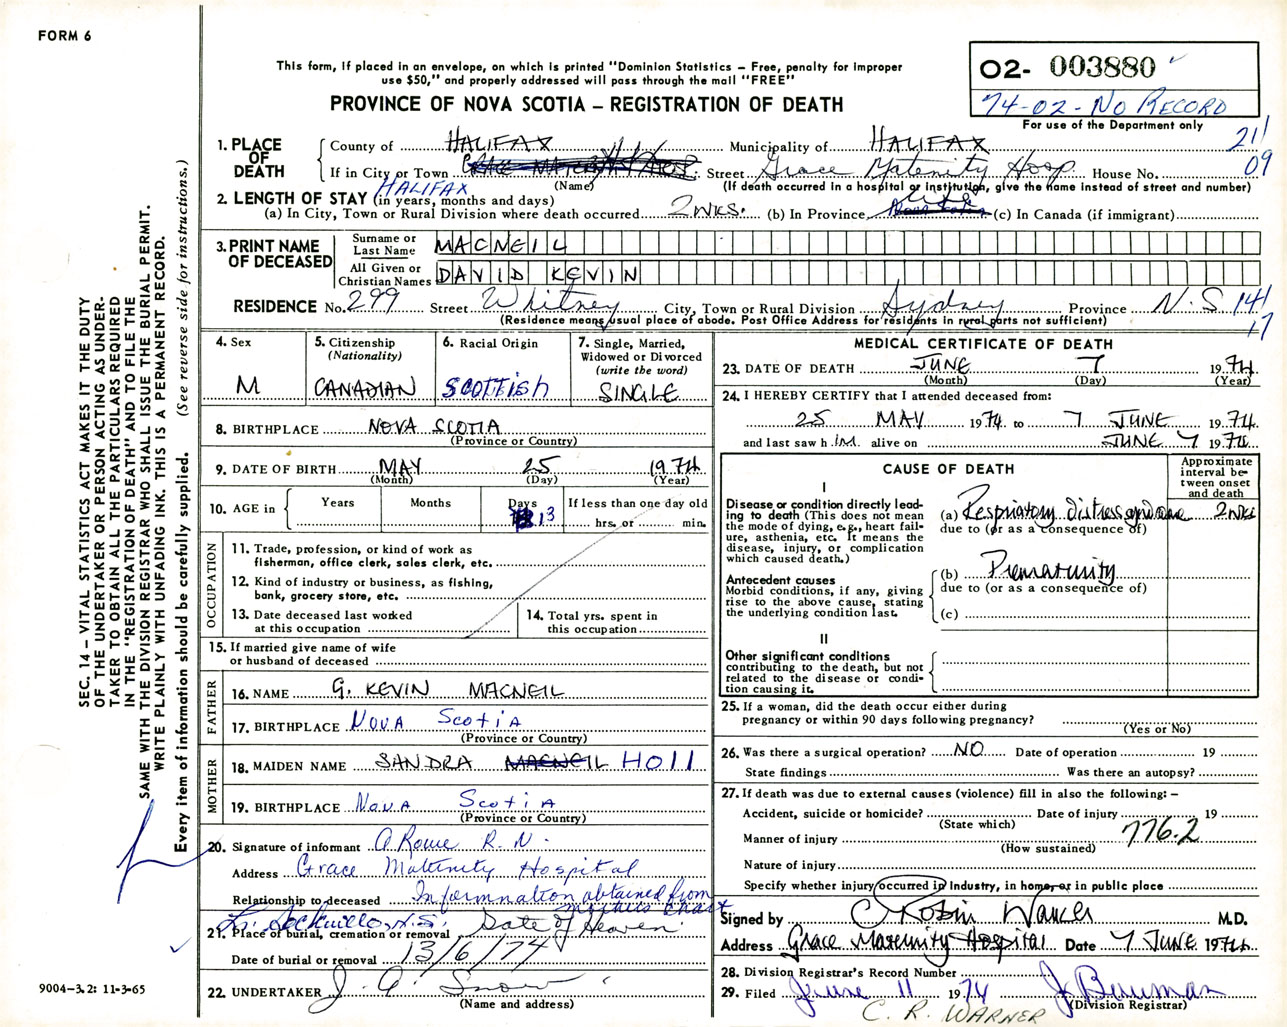 FORM 6
This form, if placed in an envelope, on which is printed "Dominion Statistics – Free, penalty for improper
use $50," and properly addressed will pass through the mail "FREE"
PROVINCE OF NOVA SCOTIA – REGISTRATION OF DEATH
02- 003880
74-02-NO RECORD
For use of the Department only
21
09
1. PLACE OF DEATH
County of HALIFAX Municipality of HALIFAX
If in City or Town HALIFAX Street Grace Maternity Hosp. House No.
(Name) (If death occurred in a hospital or institution, give the name instead of street and number)
2. LENGTH OF STAY (in years, months and days)
(a) In City, Town or Rural Division where death occurred 2 WKS. (b) In Province life (c) In Canada (if immigrant)
3. PRINT NAME OF DECEASED
Surname or Last Name MACNEIL
All Given or Christian Names DAVID KEVIN
RESIDENCE No. 299 Street Whitney City, Town or Rural Division Sydney Province N.S
14
17
(Residence means usual place of abode. Post Office Address for residents in rural parts not sufficient)
4. Sex
M
5. Citizenship
(Nationality)
CANADIAN
6. Racial Origin
SCOTTISH
7. Single, Married,
Widowed or Divorced
(write the word)
SINGLE
8. BIRTHPLACE NOVA SCOTIA
(Province or Country)
9. DATE OF BIRTH MAY 25 1974
(Month) (Day) (Year)
10. AGE in Years Months Days 13 If less than one day old
hrs. or min.
OCCUPATION
11. Trade, profession, or kind of work as
fisherman, office clerk, sales clerk, etc.
12. Kind of industry or business, as fishing,
bank, grocery store, etc.
13. Date deceased last worked
at this occupation
14. Total yrs. spent in
this occupation
15. If married give name of wife
or husband of deceased
FATHER
16. NAME G. KEVIN MACNEIL
17. BIRTHPLACE NOVA SCOTIA
(Province or Country)
MOTHER
18. MAIDEN NAME SANDRA MACNEIL HOLL
19. BIRTHPLACE NOVA SCOTIA
(Province or Country)
20. Signature of informant A Rowe R.N.
Address Grace Maternity Hospital
Relationship to deceased Information obtained from
mother's chart
21. Place of burial, cremation or removal Gate of Heaven
N.S.
Date of burial or removal 13/6/74
22. UNDERTAKER J. A. Snow
(Name and address)
MEDICAL CERTIFICATE OF DEATH
23. DATE OF DEATH JUNE 7 1974
(Month) (Day) (Year)
24. I HEREBY CERTIFY that I attended deceased from:
25 MAY 1974 to 7 JUNE 1974
and last saw h im alive on JUNE 7 1974
CAUSE OF DEATH
Approximate
interval be-
tween onset
and death
I
Disease or condition directly lead-
ing to death (This does not mean
the mode of dying, e.g., heart fail-
ure, asthenia, etc. It means the
disease, injury, or complication
which caused death.)
(a) Respiratory distress syndrome 2 wks
due to (or as a consequence of)
Antecedent causes
Morbid conditions, if any, giving
rise to the above cause, stating
the underlying condition last.
(b) Prematurity
due to (or as a consequence of)
(c)
II
Other significant conditions
contributing to the death, but not
related to the disease or condi-
tion causing it.
25. If a woman, did the death occur either during
pregnancy or within 90 days following pregnancy?
(Yes or No)
26. Was there a surgical operation? NO Date of operation 19
State findings Was there an autopsy?
27. If death was due to external causes (violence) fill in also the following: –
Accident, suicide or homicide? Date of injury 19
(State which)
776.2
Manner of injury
(How sustained)
Nature of injury
Specify whether injury occurred in industry, in home, or in public place
Signed by C Robin Warner M.D.
Address Grace Maternity Hospital Date 7 JUNE 1974
28. Division Registrar's Record Number
29. Filed June 11 1974 J. Bauman
(Division Registrar)
C. R. WARNER
SEC. 14 – VITAL STATISTICS ACT MAKES IT THE DUTY
OF THE UNDERTAKER OR PERSON ACTING AS UNDER-
TAKER TO OBTAIN ALL THE PARTICULARS REQUIRED
IN THE "REGISTRATION OF DEATH" AND TO FILE THE
SAME WITH THE DIVISION REGISTRAR WHO SHALL ISSUE THE BURIAL PERMIT.
WRITE PLAINLY WITH UNFADING INK. THIS IS A PERMANENT RECORD.
Every item of information should be carefully supplied. (See reverse side for instructions.)
9004-3.2: 11-3-65